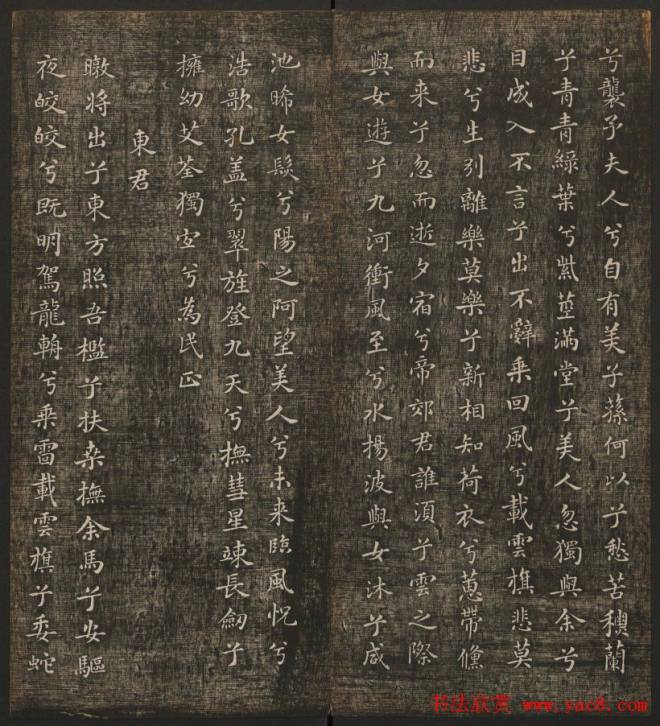 兮襲予夫人兮自有美子蓀何以兮愁苦穐蘭
兮青青綠葉兮紫莖滿堂兮美人忽獨與余兮
目成入不言兮出不辭乘回風兮載雲旗悲莫
悲兮生別離樂莫樂兮新相知荷衣兮蕙帶儵
而来兮忽而逝夕宿兮帝郊君誰須兮雲之際
與女遊兮九河衝風至兮水揚波與女沐兮咸
池晞女髮兮陽之阿望美人兮未来臨風怳兮
浩歌孔盖兮翠旌登九天兮撫彗星竦長劒兮
擁幼艾荃獨宜兮為民正
東君
暾將出兮東方照吾檻兮扶桑撫余馬兮安驅
夜皎皎兮既明駕龍輈兮乘雷載雲旗兮委蛇
书法欣赏 www.yac8.com